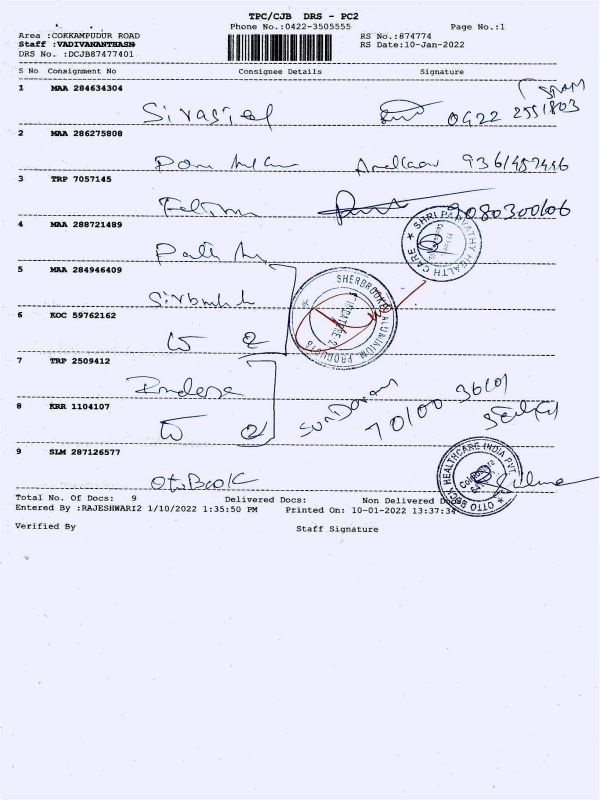 TPC/CJB DRS - PC2
Phone No.:0422-3505555
Page No.:1
Area :COKKAMPUDUR ROAD
RS No.:874774
Staff :VADIVANANTHASN
RS Date:10-Jan-2022
DRS No. :DCJB87477401
S No Consignment No Consignee Details Signature
1 MAA 284634304
0422 2551803
2 MAA 286275808
9361457446
3 TRP 7057145
9080300606
4 MAA 288721489
SHRI PARVATHY HEALTH CARE
5 MAA 284946409
SHERBROOKE ALUMINIUM PRODUCTS
6 KOC 59762162
7 TRP 2509412
8 KRR 1104107
70100 36101
9 SLM 287126577
OttoBock
OTTO BOCK HEALTHCARE INDIA PVT.
Total No. Of Docs: 9 Delivered Docs: Non Delivered Docs:
Entered By :RAJESHWARI2 1/10/2022 1:35:50 PM Printed On: 10-01-2022 13:37:34
Verified By Staff Signature